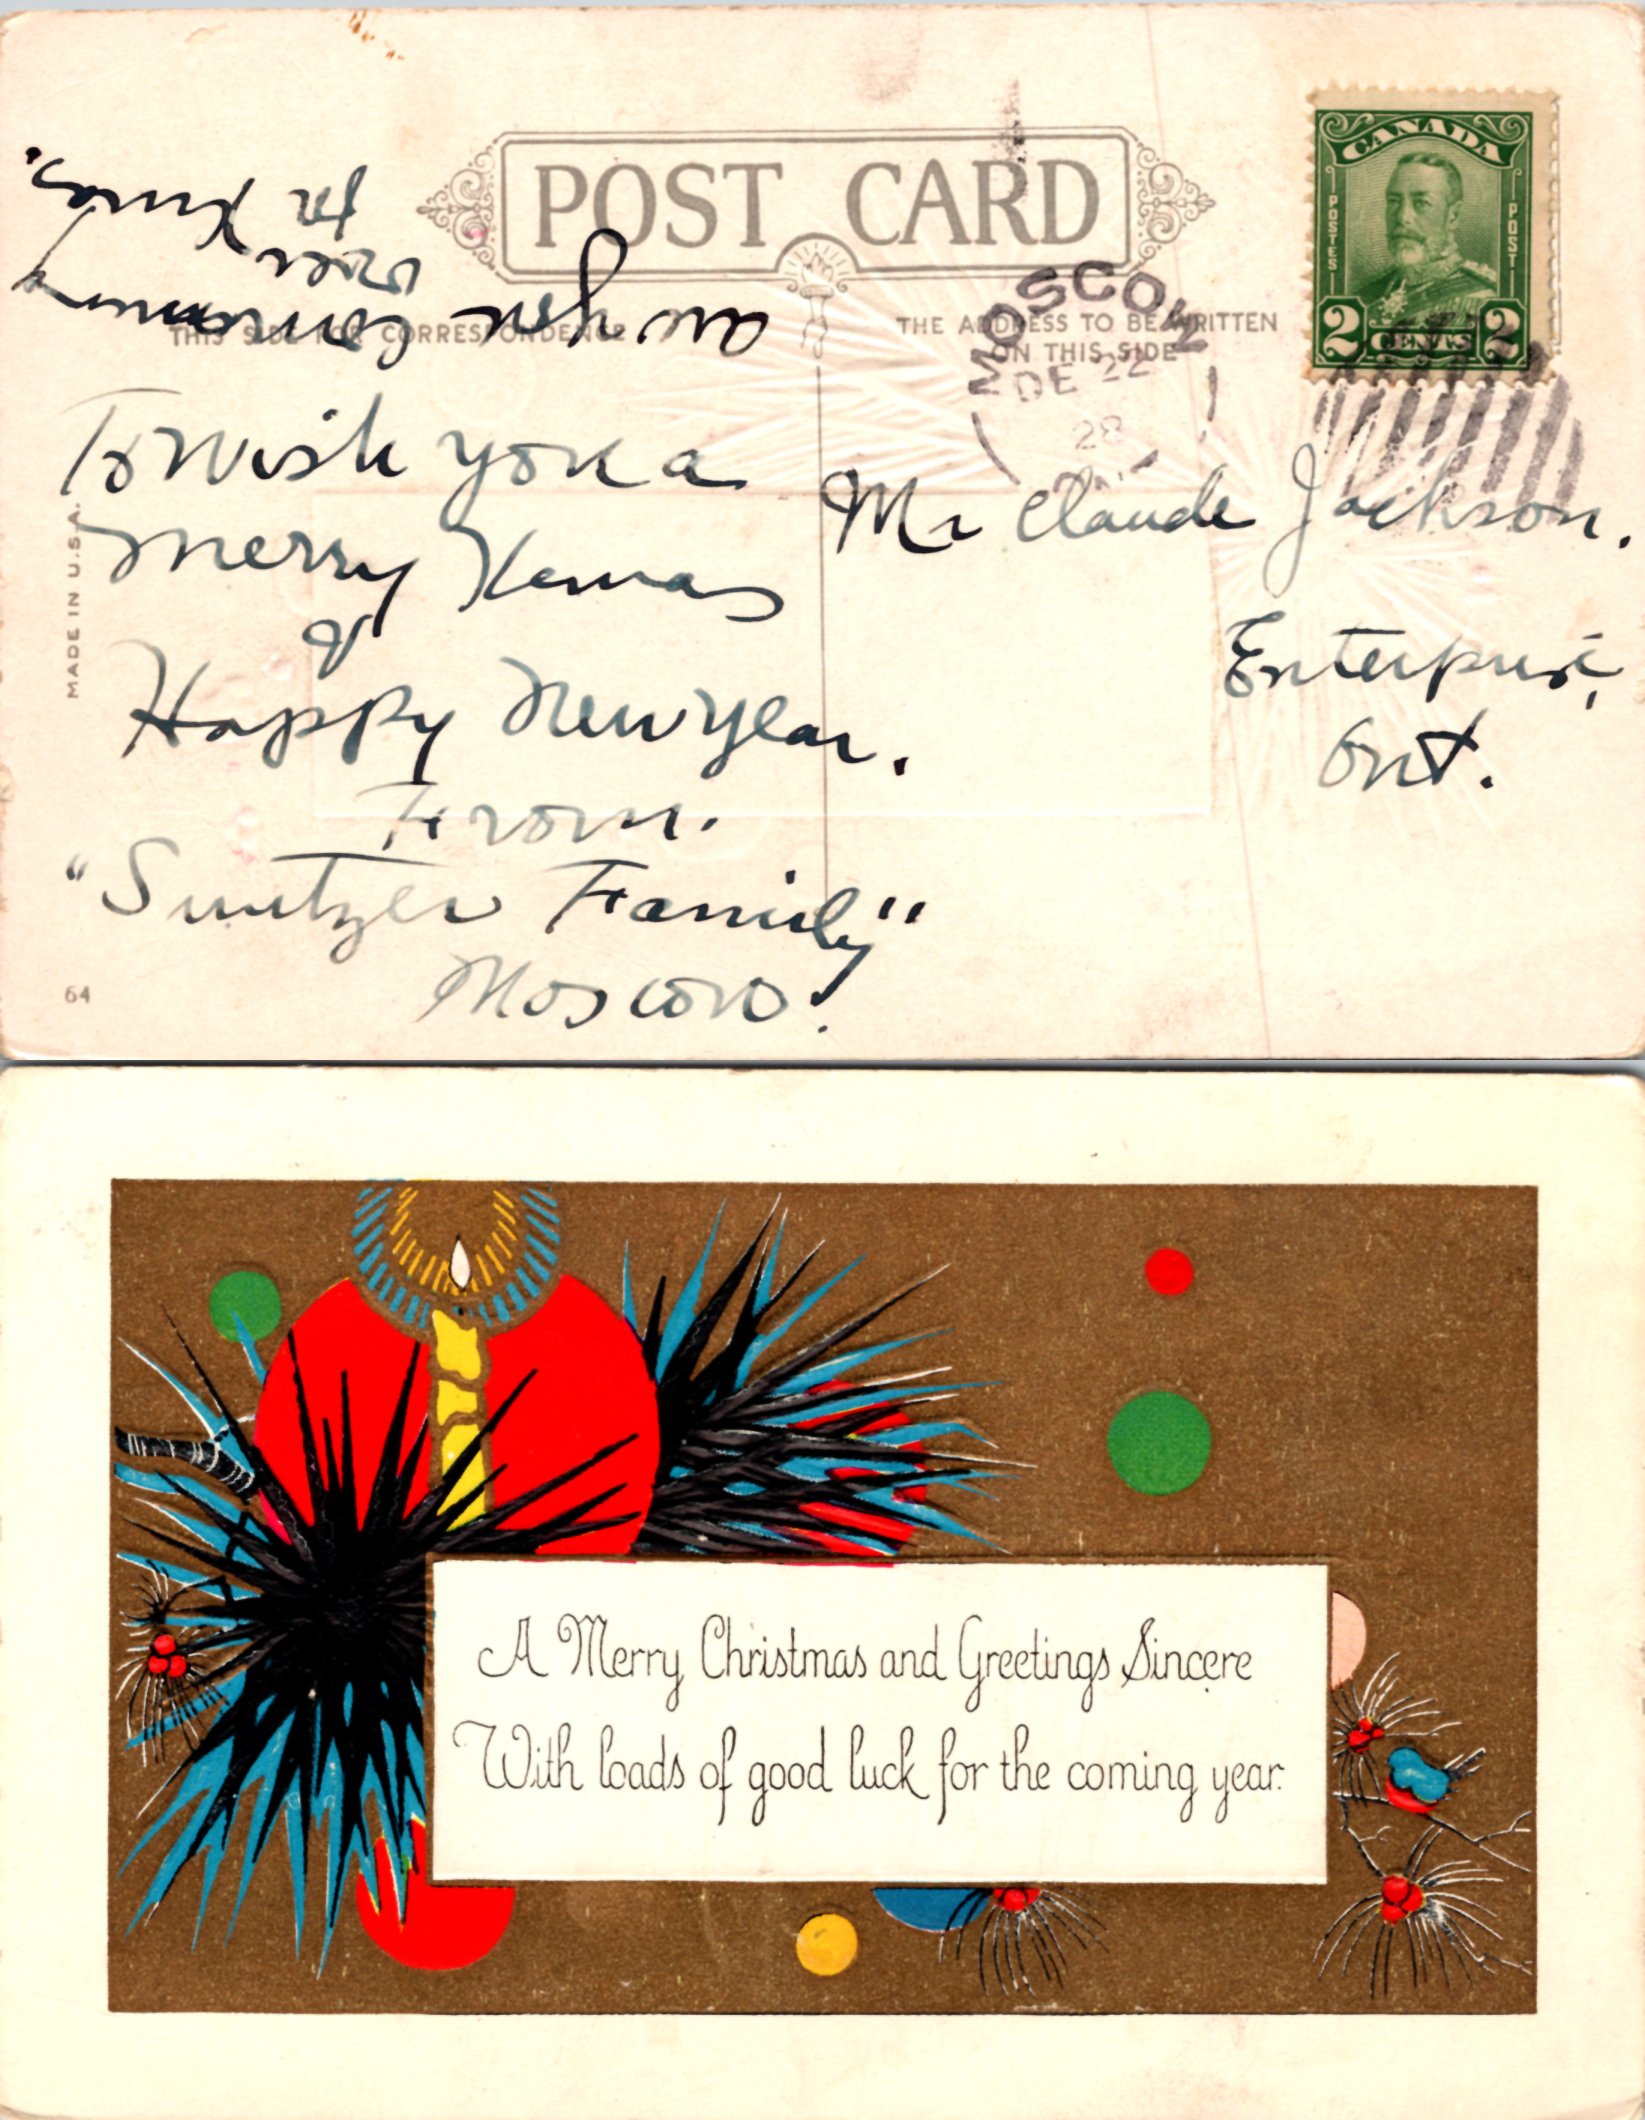 POST CARD
CANADA
POSTES
POST
2 CENTS 2
THIS SIDE FOR CORRESPONDENCE
THE ADDRESS TO BE WRITTEN
ON THIS SIDE
MOSCOW
DE 22
28
are you coming
over
for Xmas.
To Wish you a
Merry Xmas
&
Happy New Year.
From.
"Switzer Family"
Moscow.
Mr Claude Jackson.
Enterprise,
Ont.
MADE IN U.S.A.
64
A Merry Christmas and Greetings Sincere
With loads of good luck for the coming year.